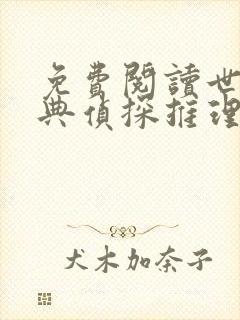 免費閱讀世
典偵探推理
犬木加奈子